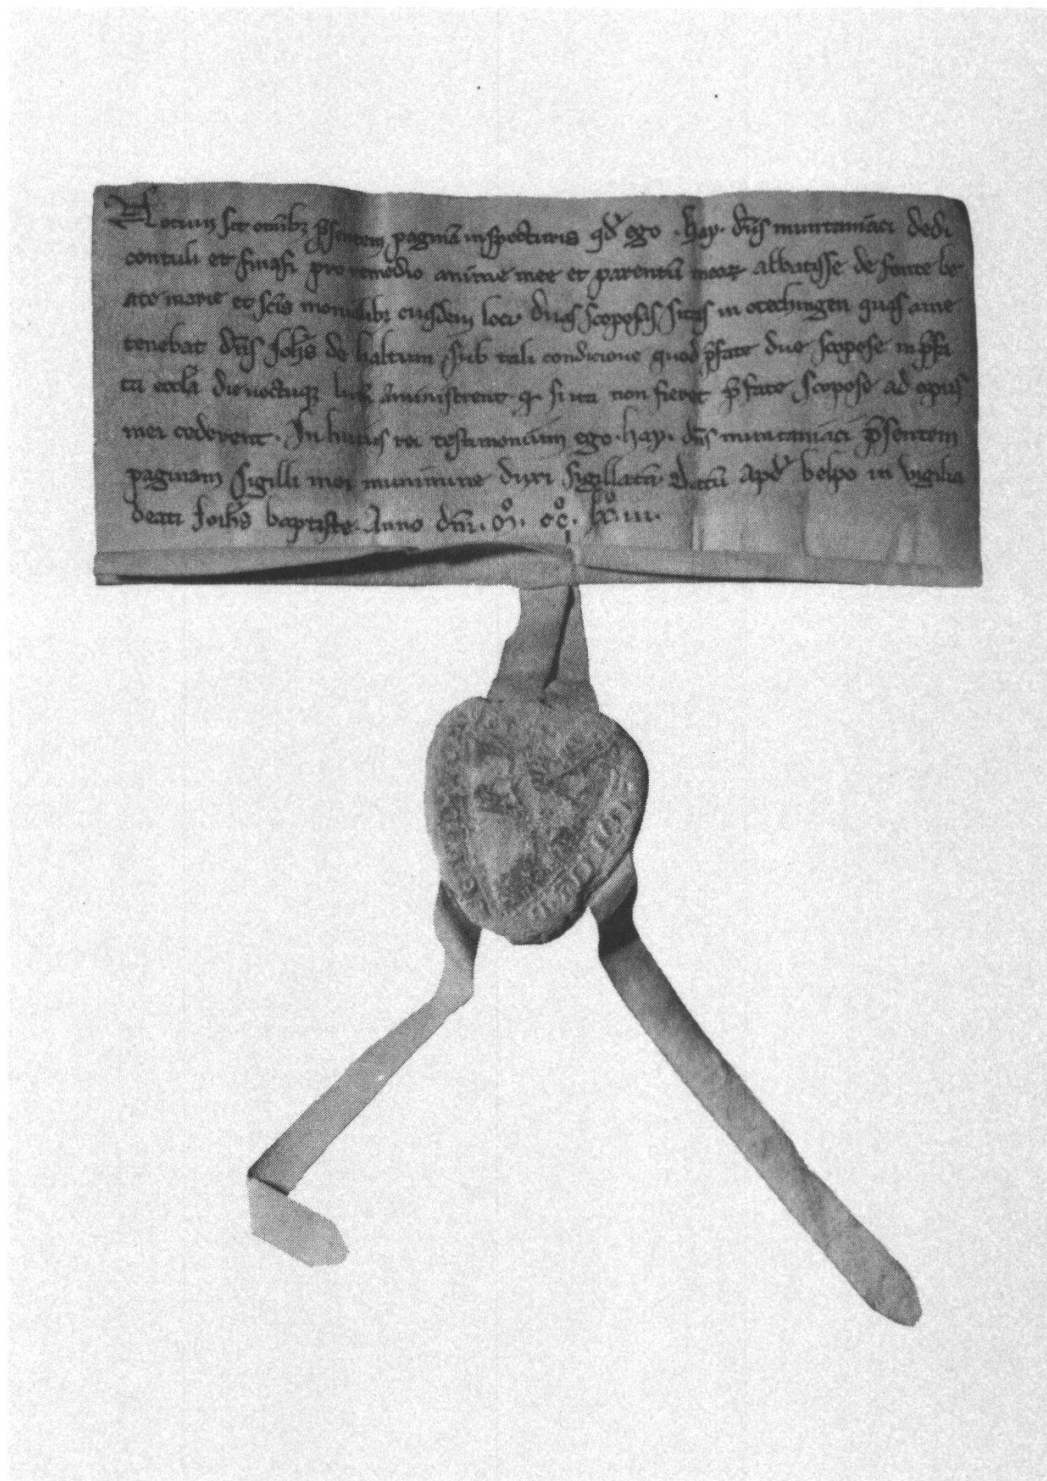 Notum sit omĩbz p̃sentem paginã inspecturis qd̃ ego . hay . dñs muntaniaci dedi
contuli et
pro remedio anime mee et parentũ meoꝝ abbatisse de fonte be
ate marie et scĩs monialibz eiusdem loci duas scoposas sitas in otechingen quas ante
tenebat dñs Joħs de haltun sub tali condicione quod p̃fate due scopose in p̃fa
ta eccłã die noctuqꝫ aministrent qꝫ si ita non fieret p̃fate scopose ad opus
mei cederent . In huius rei testimonium ego . hay . dñs muntaniaci p̃sentem
paginam sigilli mei munimine duxi sigillatũ Datũ apd̃ belpo in vigilia
beati Joħis baptiste . Anno dñi . M̊ . cc̊ . lx̊iii .